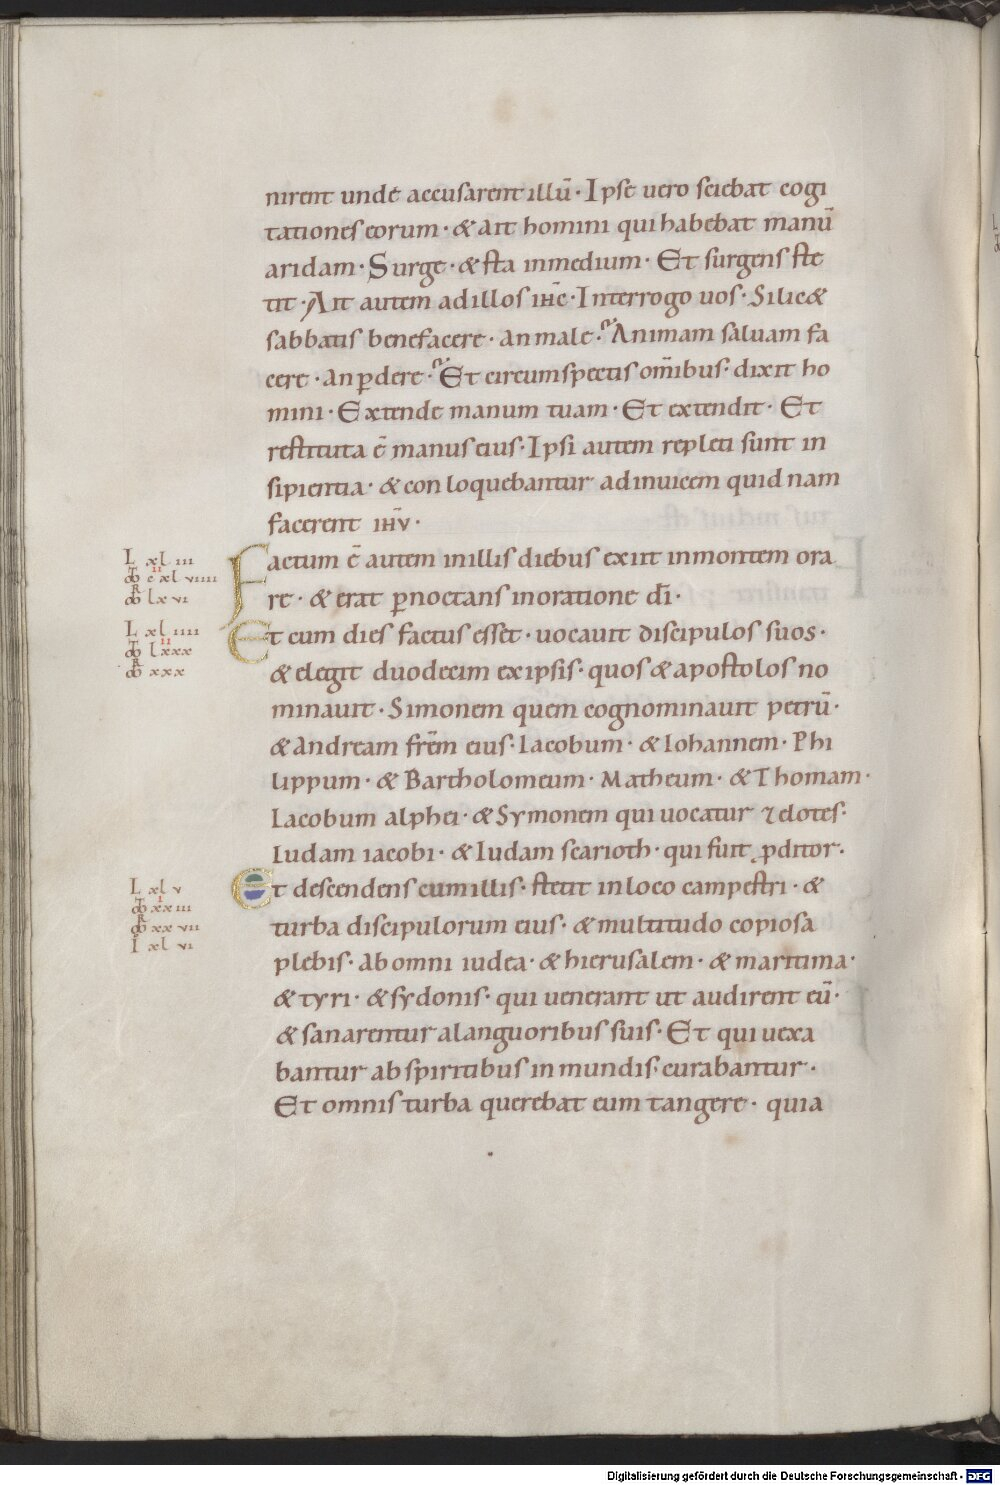 nirent unde accusarent illū · Ipse uero sciebat cogi
tationes eorum · & ait homini qui habebat manū
aridam · Surge · & sta inmedium · Et surgens ste
tit · Ait autem adillos ih̄c · Interrogo uos · Si lic&
sabbatis benefacere · an male · Animam saluam fa
cere · an ꝑdere · Et circumspectis om̄ibus · dixit ho
mini · Extende manum tuam · Et extendit · Et
restituta ē manus eius · Ipsi autem repleti sunt in
sipientia · & conloquebantur adinuicem quid nam
facerent ih̄v ·
Factum ē autem inillis diebus exiit inmontem ora
re · & erat ꝑnoctans inoratione dī ·
Et cum dies factus esset · uocauit discipulos suos ·
& elegit duodecim exipsis · quos & apostolos no
minauit · Simonem quem cognominauit petrū ·
& Andream frēm eius · Iacobum · & Iohannem · Phi
lippum · & Bartholomeum · Matheum · & Thomam ·
Iacobum alphei · & Symonem qui uocatur zelotes ·
Iudam iacobi · & Iudam scarioth · qui fuit ꝓditor ·
Et descendens cumillis · stetit inloco campestri · &
turba discipulorum eius · & multitudo copiosa
plebis · Ab omni iudea · & hierusalem · & maritima ·
& tyri · & sydonis · qui uenerant ut audirent eū ·
& sanarentur alanguoribus suis · Et qui uexa
bantur ab spiritibus inmundis · curabantur ·
Et omnis turba querebat eum tangere · quia
L xl iii
lx vi
L xl iiii
lxxx
xxx
L xl v
xx iii
xx vii
I xl vi
Digitalisierung gefördert durch die Deutsche Forschungsgemeinschaft - DFG